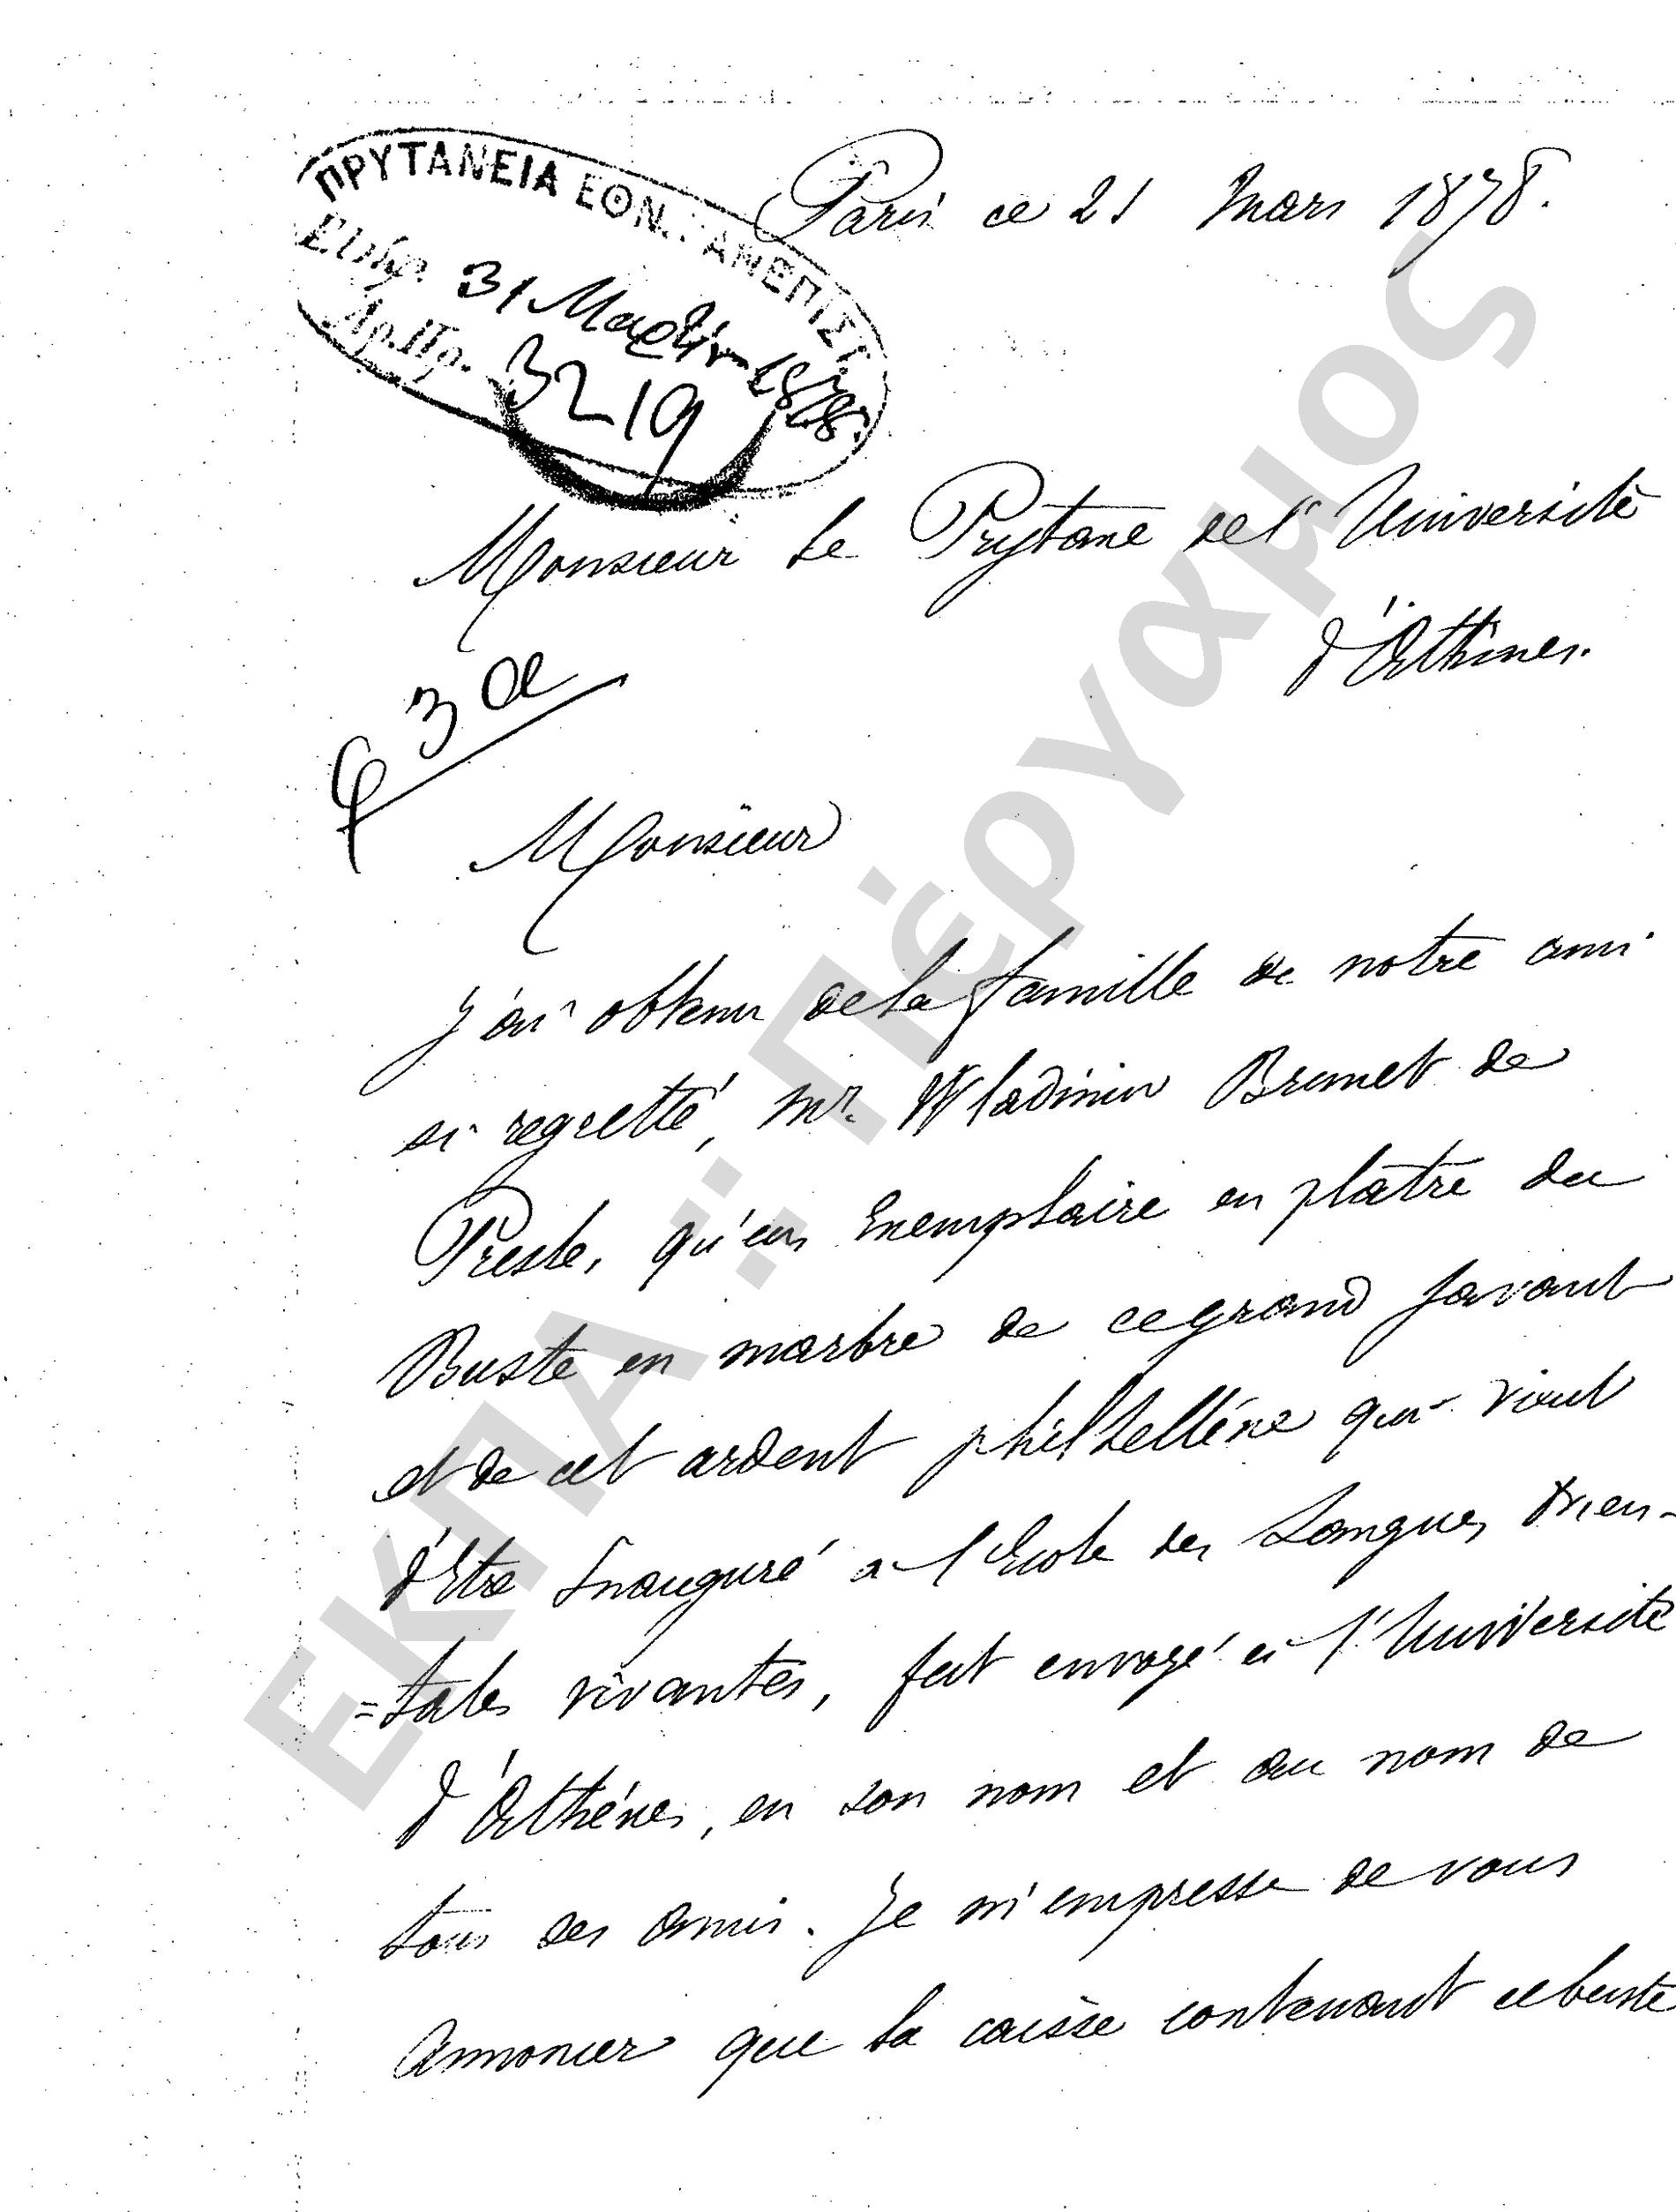 ΠΡΥΤΑΝΕΙΑ ΕΘΝ. ΠΑΝΕΠΙΣΤ.
Paris ce 21 Mars 1878.
Ελήφ. 31 Μαρτίου 1878
Αρ. Πρ. 3219
Monsieur Le Prytane de l'Université
d'Athènes.
Monsieur
J'ai obtenu de la famille de notre ami
si regretté, Mr. Wladimir Brunet de
Presle, qu'un Exemplaire en platre du
Buste en marbre de ce grand Savant
et de cet ardent philhellène qui vient
d'être Inauguré a l'Ecole des Langues Orien-
=tales vivantes, fut envoyé à l'Université
d'Athénes, en son nom et au nom de
tous ses amis. Je m'empresse de vous
Annoncer que la caisse contenant ce buste
ΕΚΠΑ :: Πέργαμος